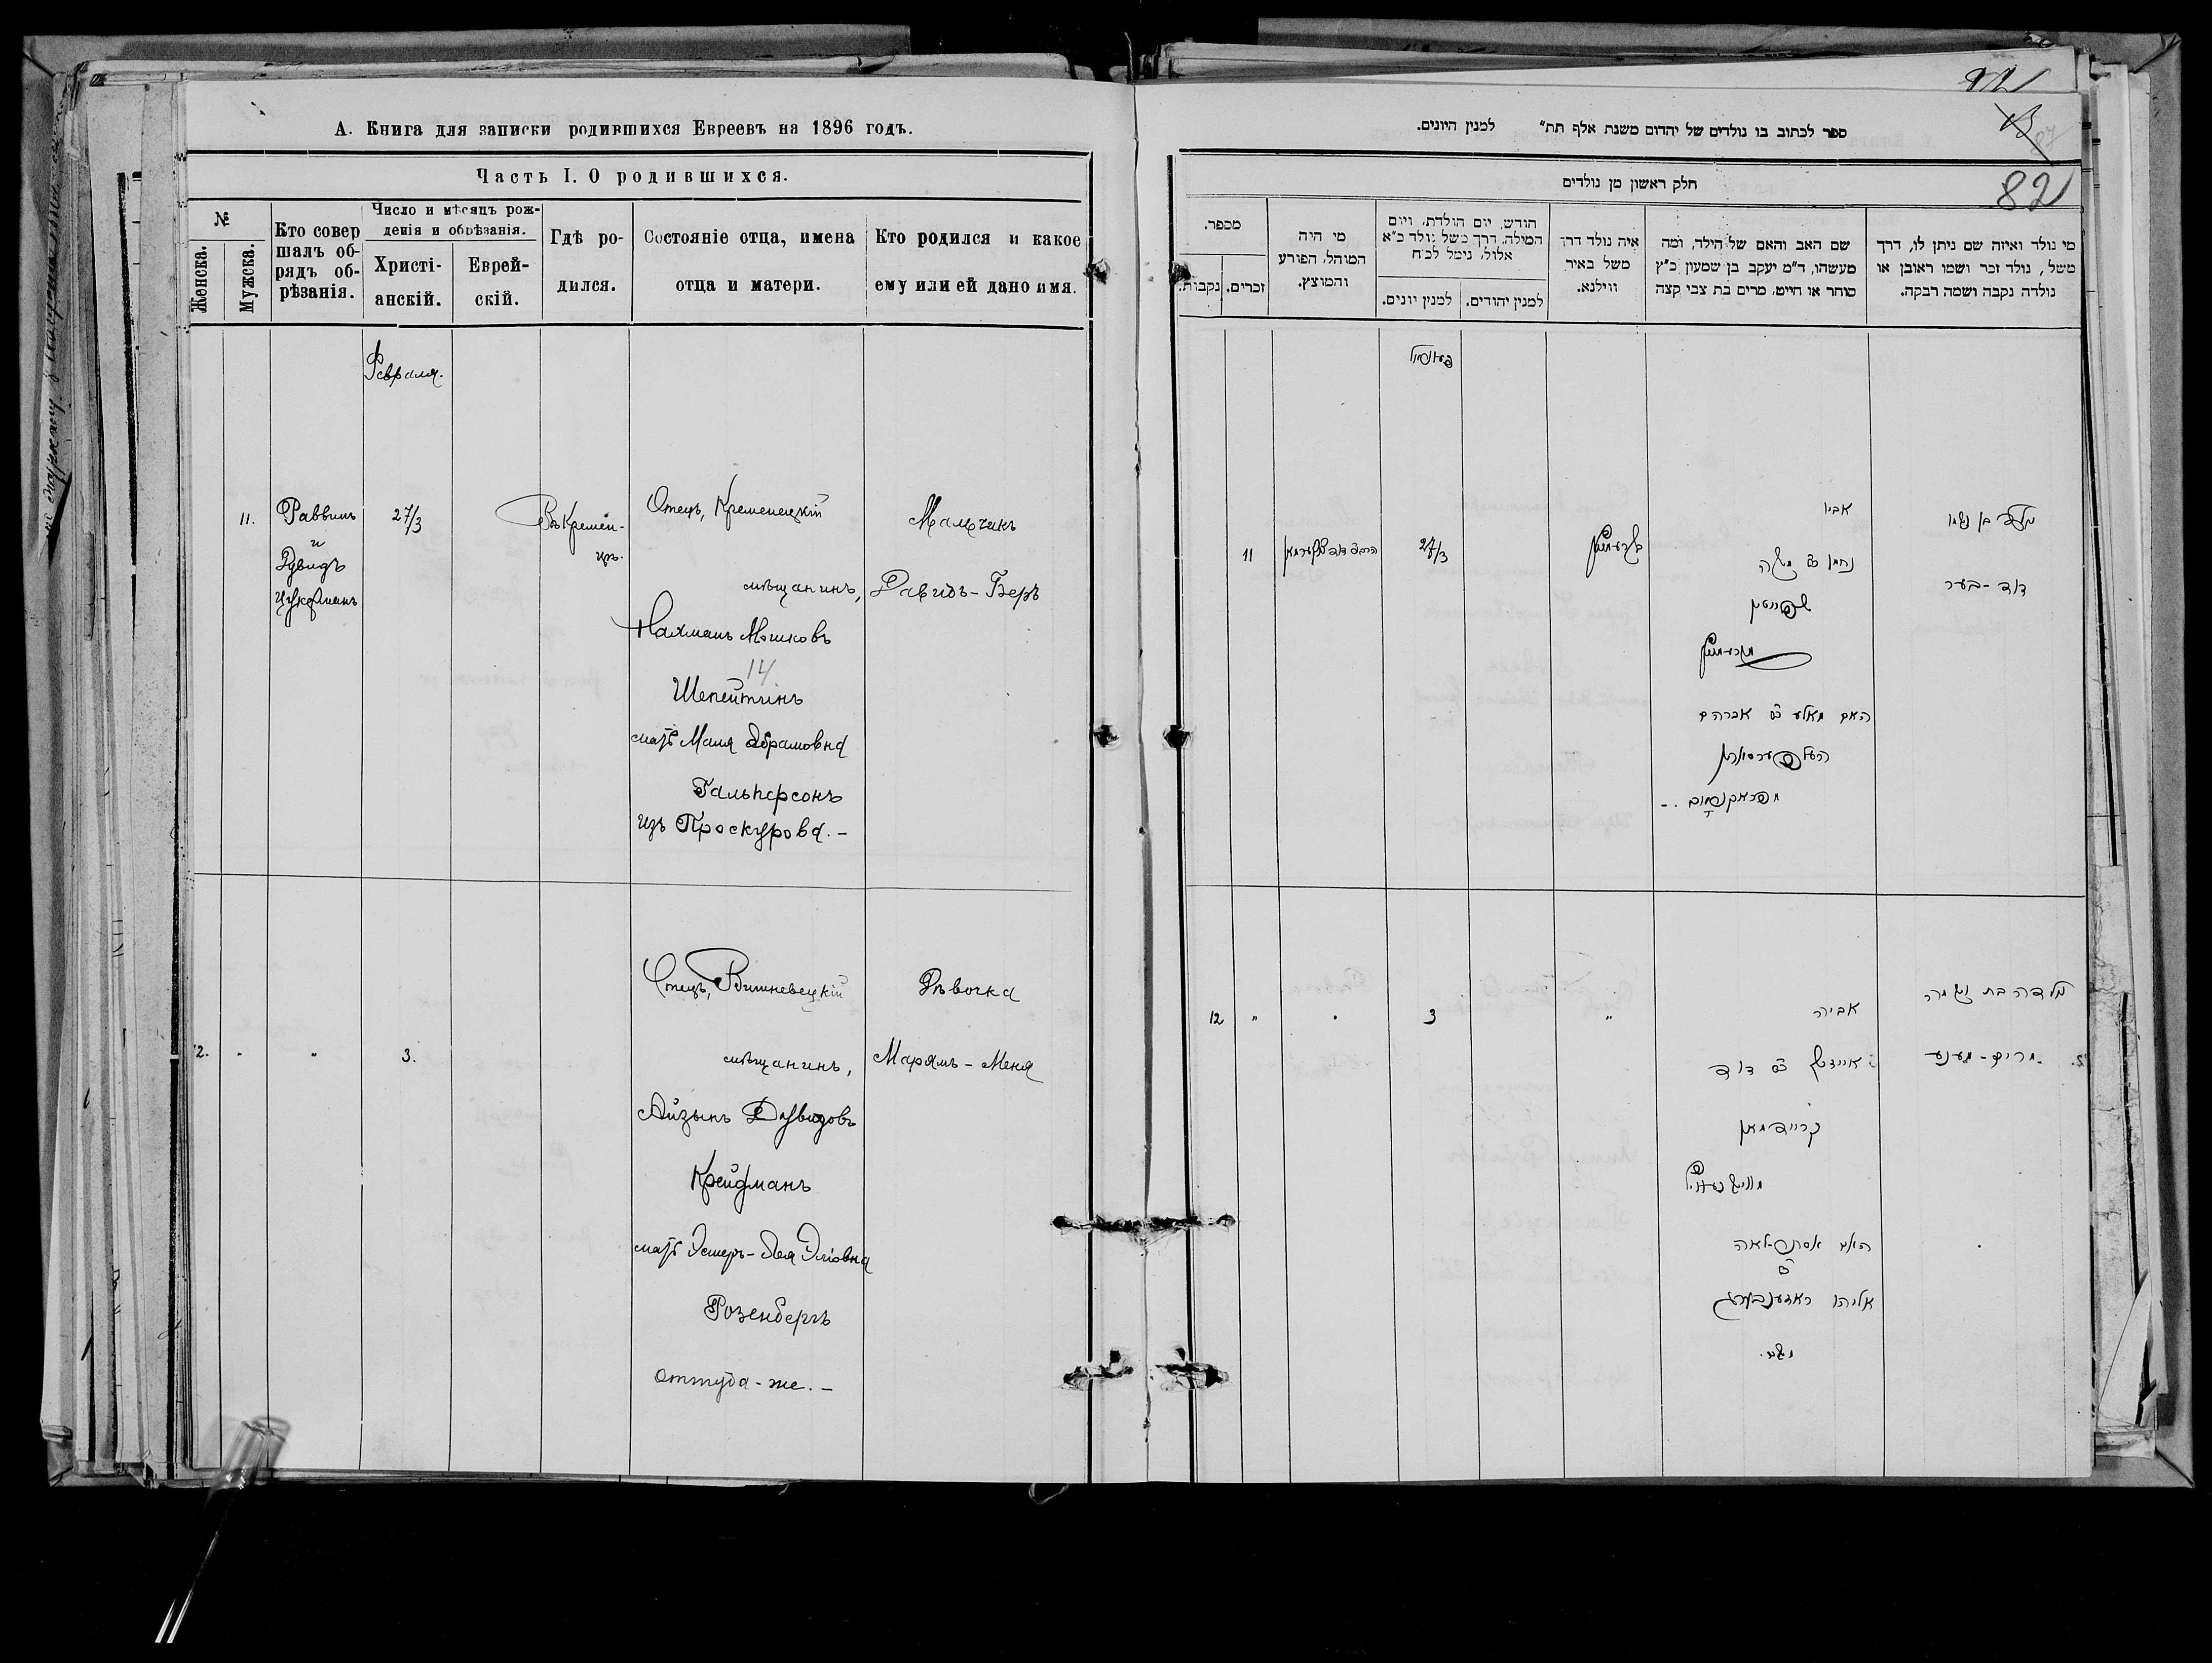 А. Книга для записки родившихся Евреевъ на 1896 годъ.
Часть I. О родившихся.
№
Женска.
Мужска.
Кто совершалъ обрядъ обрѣзанія.
Число и мѣсяцъ рожденія и обрѣзанія.
Христіанскій.
Еврейскій.
Гдѣ родился.
Состояніе отца, имена отца и матери.
Кто родился и какое ему или ей дано имя.
Февраля.
11.
Раввинъ
и
Цукерманъ
27/3
Въ Кремен-
цѣ.
Отецъ, Кременецкій
мѣщанинъ,
Нахманъ Мошковъ
14
Шепейтинъ
мать Маля Абрамовна
Гальперсонъ
изъ Проскурова.–
Мальчикъ
Давидъ-Беръ
12.
"
"
3.
Отецъ, Вишневецкій
мѣщанинъ,
Айзыкъ Давидовъ
Крейдманъ
мать Эстеръ-Лея Эліовна
Розенбергъ
оттуда-же.–
Дѣвочка
Марямъ-Меня
82
ספר לכתוב בו נולדים של יהדום משנת אלף תת״ למנין היונים.
חלק ראשון מן נולדים
מספר.
נקבות.
זכרים.
מי היה המוהל, הפורע והמוצץ.
חודש, יום הולדת, ויום המילה, דרך משל נולד כ״א אלול, נימל לכ״ח
למנין יונים.
למנין יהודים.
איה נולד דרך משל באיר ווילנא.
שם האב והאם של הילד, ומה מעשהו, ד״מ יעקב בן שמעון כ״ץ סוחר או חייט, מרים בת צבי קצה
מי נולד ואיזה שם ניתן לו, דרך משל, נולד זכר ושמו ראובן או נולדה נקבה ושמה רבקה.
11
27/3
אביו
נחמן
האם מאלע אברהם
דוד-בער
12
"
"
3
"
אביה
דוד
קריידמאן
האם אסתר-לאה
אליהו ראזענבערג
משם.
מרים-מענע